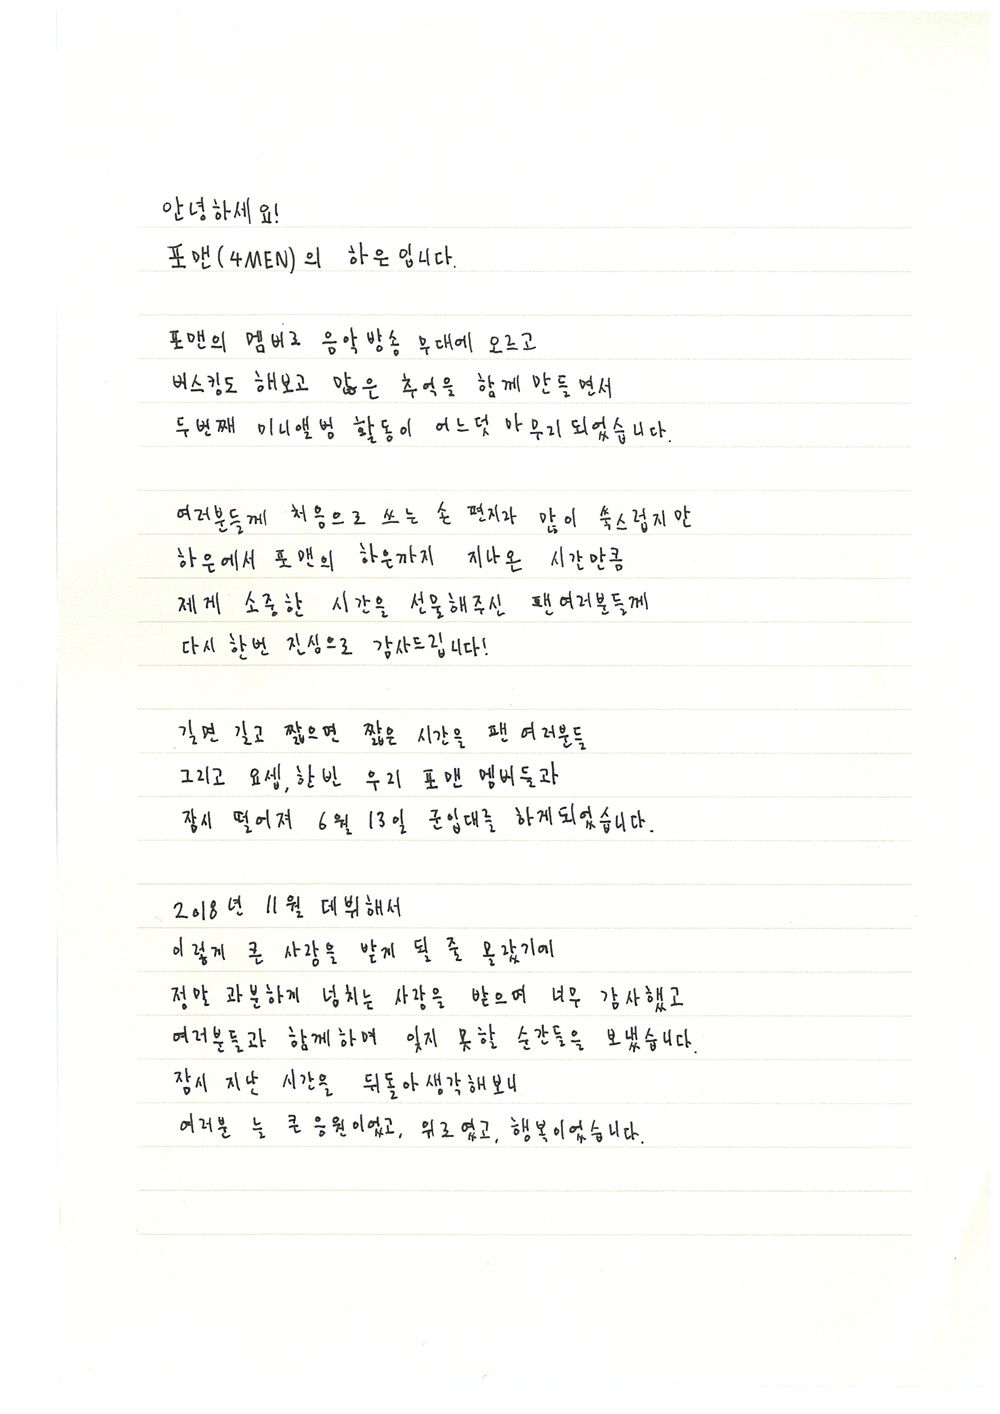 안녕하세요!
포맨(4MEN)의 하은입니다.
포맨의 멤버로 음악방송 무대에 오르고
버스킹도 해보고 많은 추억을 함께 만들면서
두번째 미니앨범 활동이 어느덧 마무리되었습니다.
여러분들께 처음으로 쓰는 손 편지라 많이 쑥스럽지만
하은에서 포맨의 하은까지 지나온 시간만큼
제게 소중한 시간을 선물해주신 팬여러분들께
다시 한번 진심으로 감사드립니다!
길면 길고 짧으면 짧은 시간을 팬 여러분들
그리고 요셉, 한빈 우리 포맨 멤버들과
잠시 떨어져 6월 13일 군입대를 하게되었습니다.
2018년 11월 데뷔해서
이렇게 큰 사랑을 받게 될 줄 몰랐기에
정말 과분하게 넘치는 사랑을 받으며 너무 감사했고
여러분들과 함께하며 잊지 못할 순간들을 보냈습니다.
잠시 지난 시간을 뒤돌아생각해보니
여러분 늘 큰 응원이었고, 위로였고, 행복이었습니다.